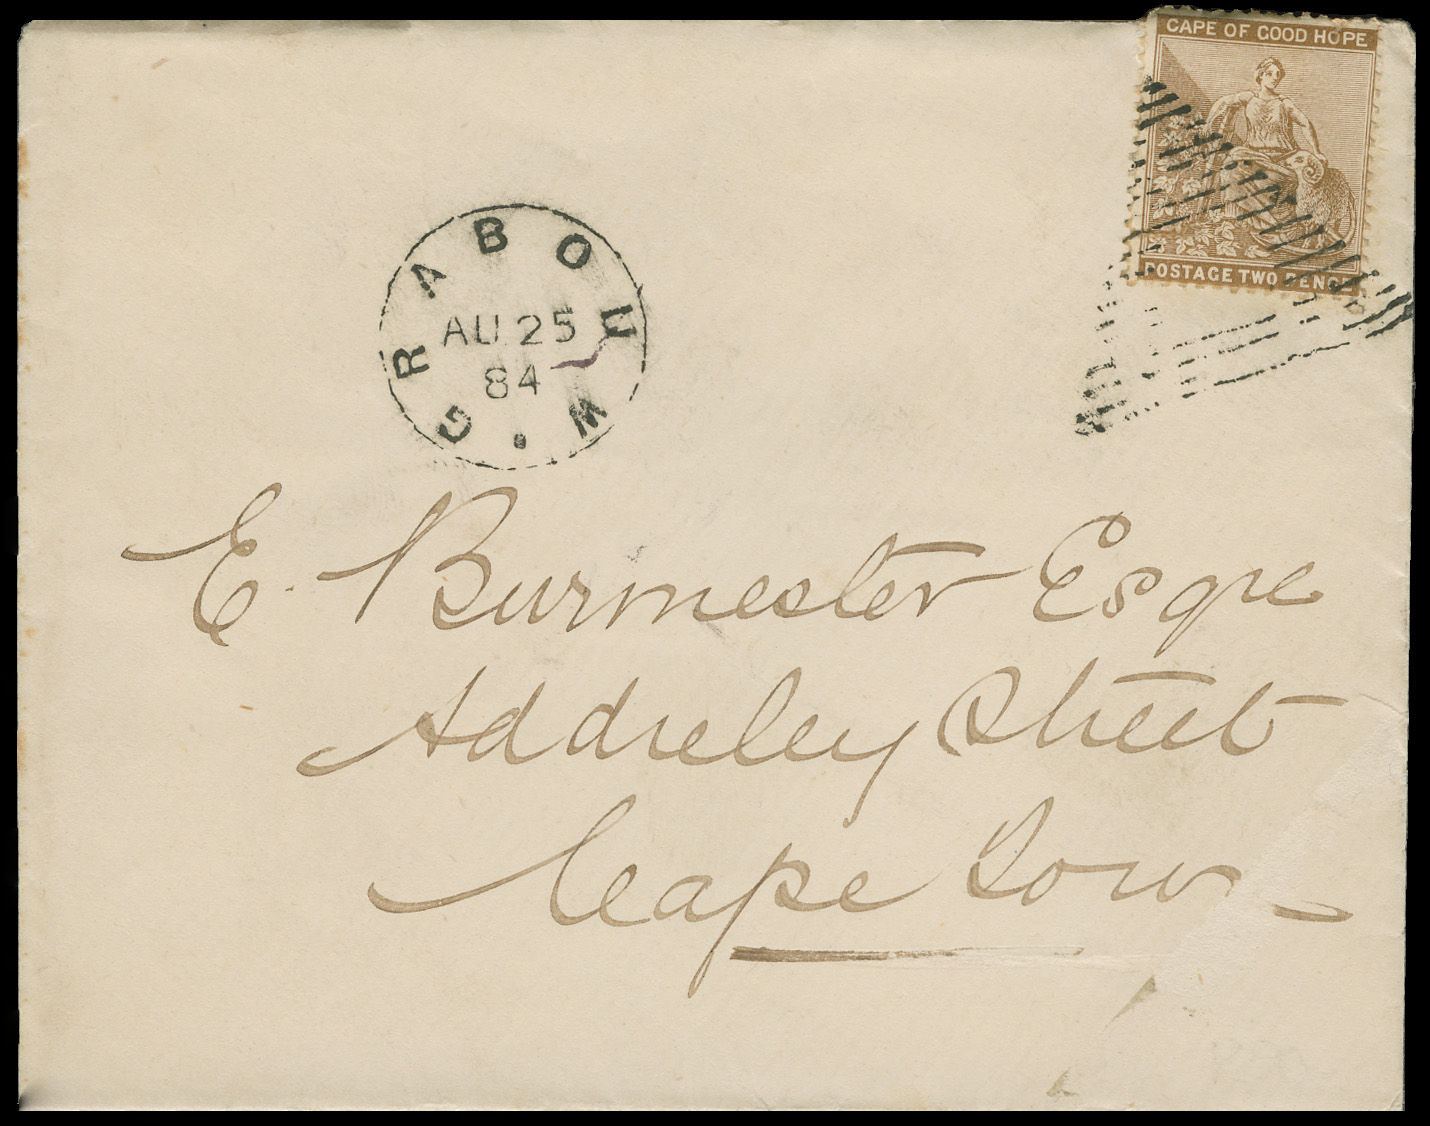 CAPE OF GOOD HOPE
POSTAGE TWO PENCE
GRABOUW
AU 25
84
E. Burmester Esqre
Adderley Street
Cape Town